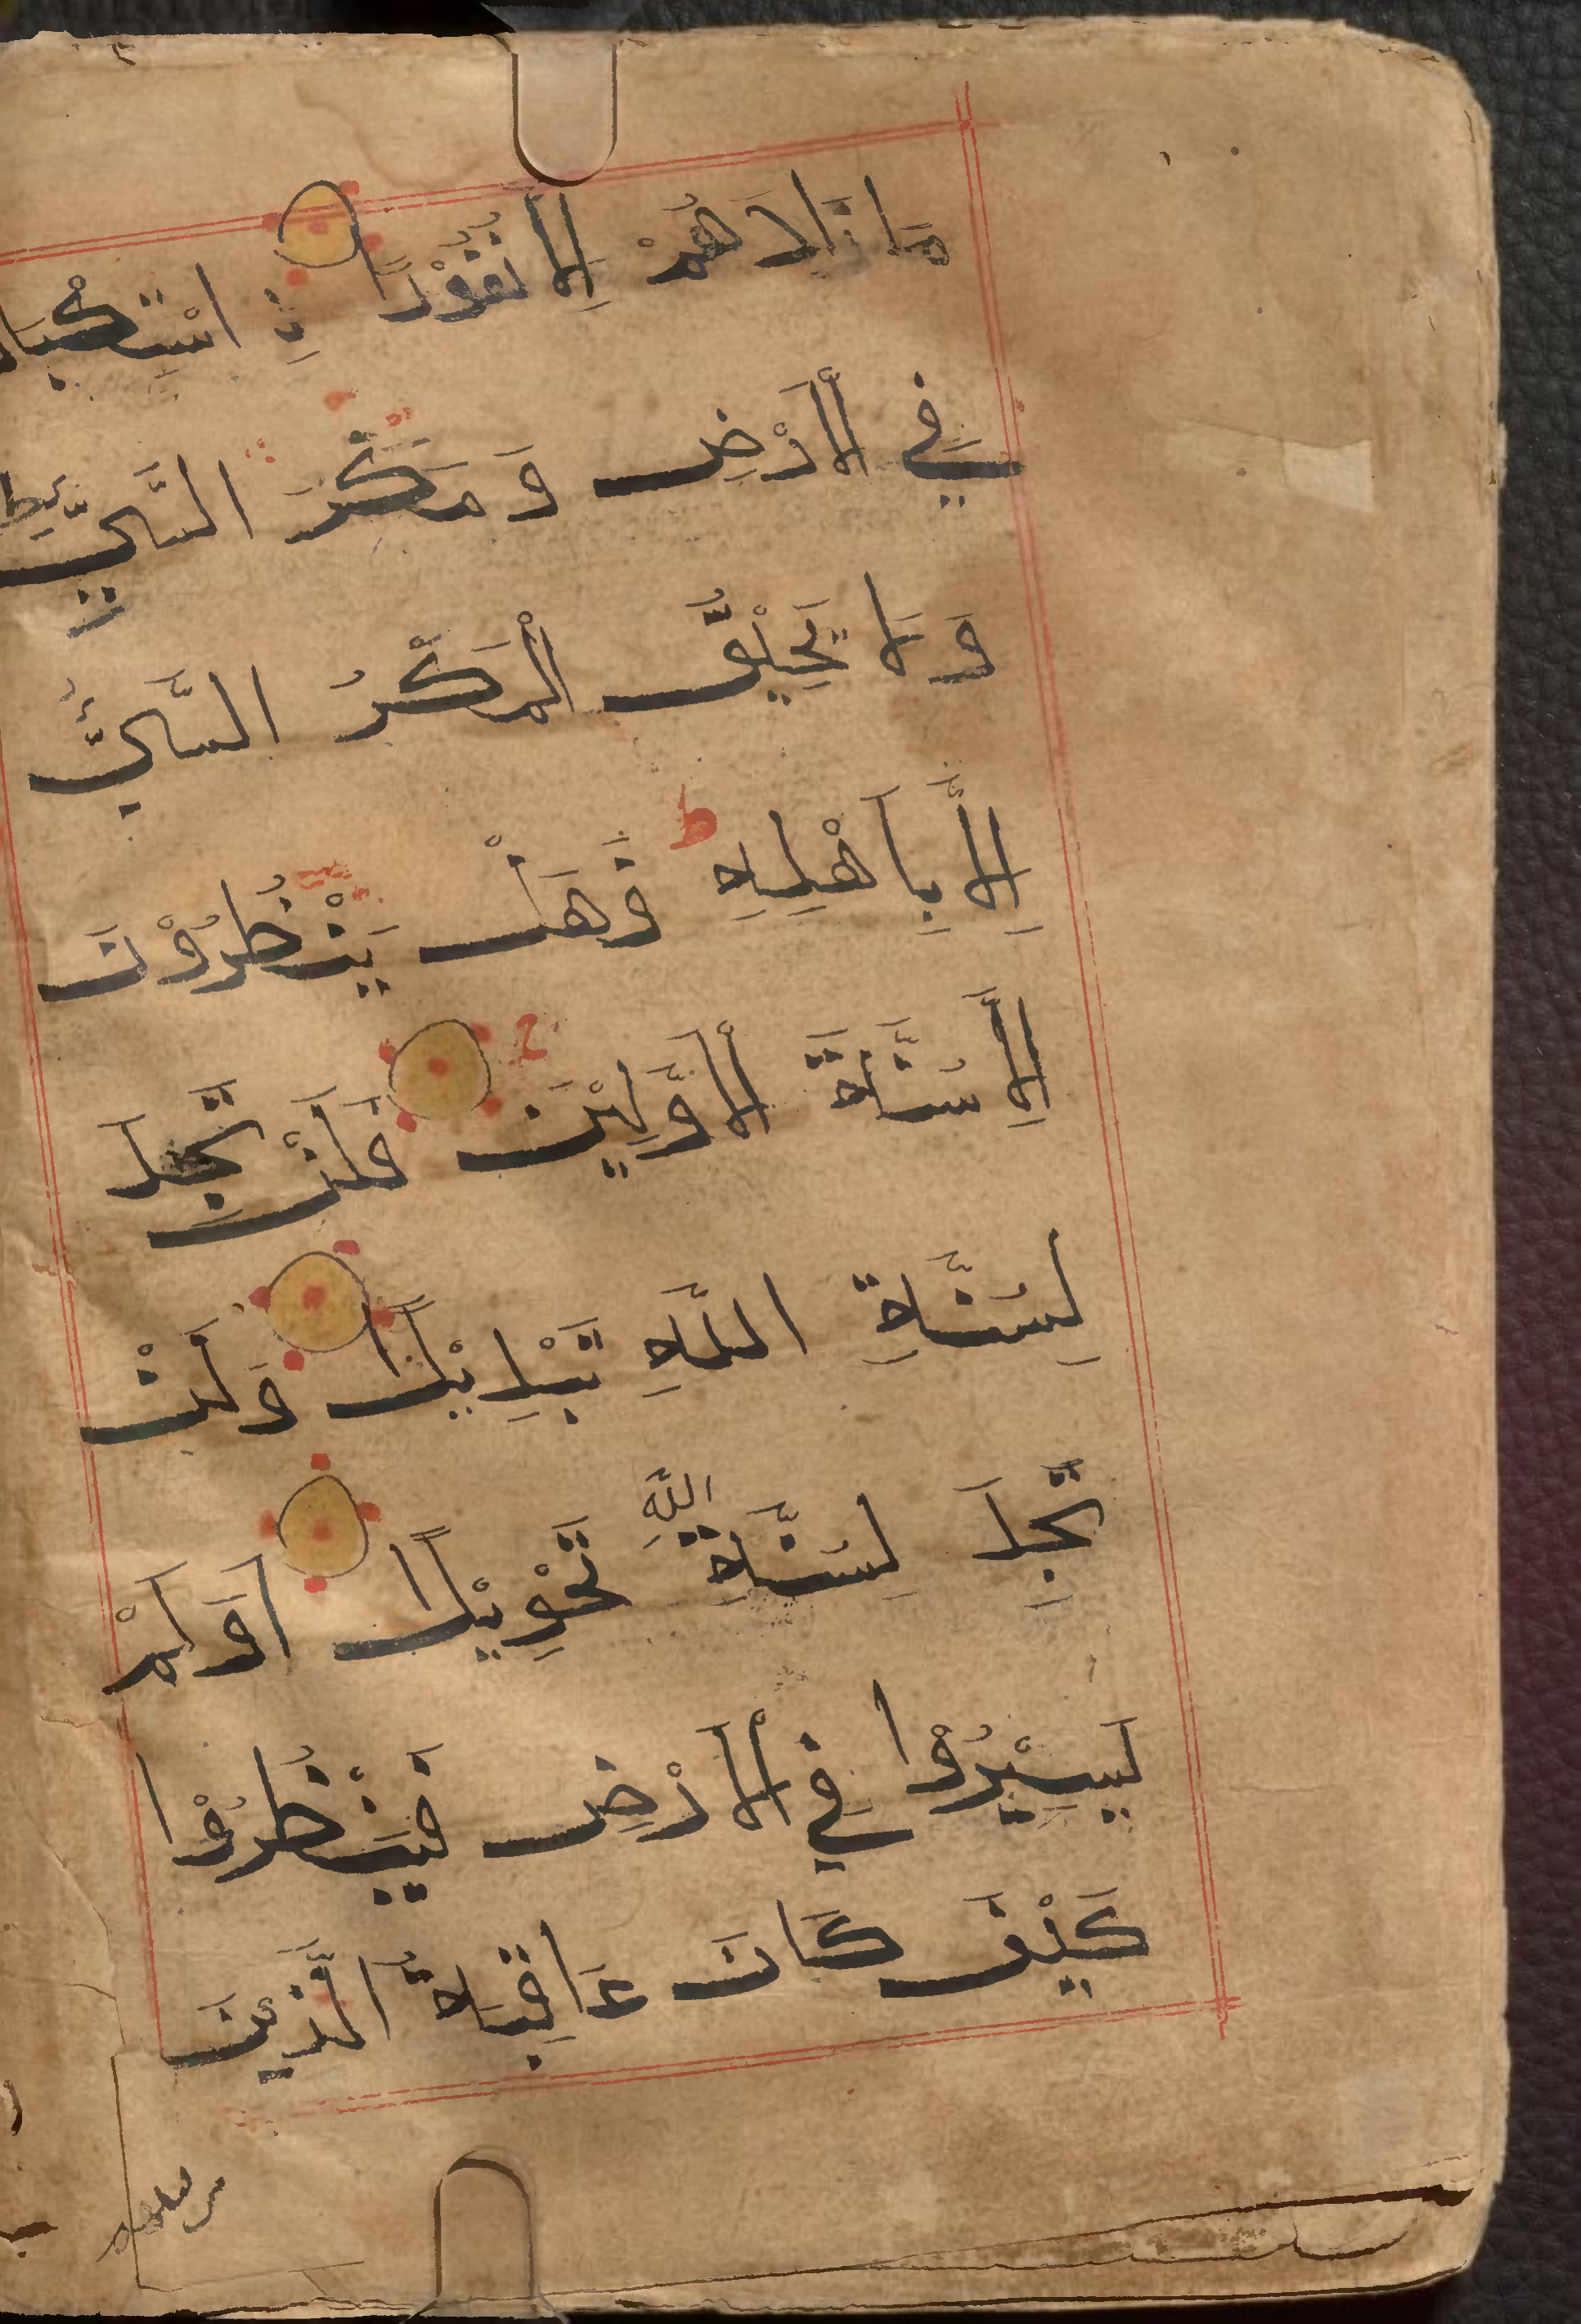 مَا زَادَهُمْ اِلَّا نُفُوْرًا نِ اسْتِكْبَا
فِي الْاَرْضِ وَ مَكْرَ السَّيِّئِ ط
وَلَا يَحِيْقُ الْمَكْرُ السَّيِّئُ
اِلَّا بِاَهْلِهٖ ط فَهَلْ يَنْظُرُوْنَ
اِلَّا سُنَّةَ الْاَوَّلِيْنَ فَلَنْ تَجِدَ
لِسُنَّةِ اللّٰهِ تَبْدِيْلًا وَلَنْ
تَجِدَ لِسُنَّةِ اللّٰهِ تَحْوِيْلًا اَوَلَمْ
يَسِيْرُوْا فِي الْاَرْضِ فَيَنْظُرُوْا
كَيْفَ كَانَ عَاقِبَةُ الَّذِيْنَ